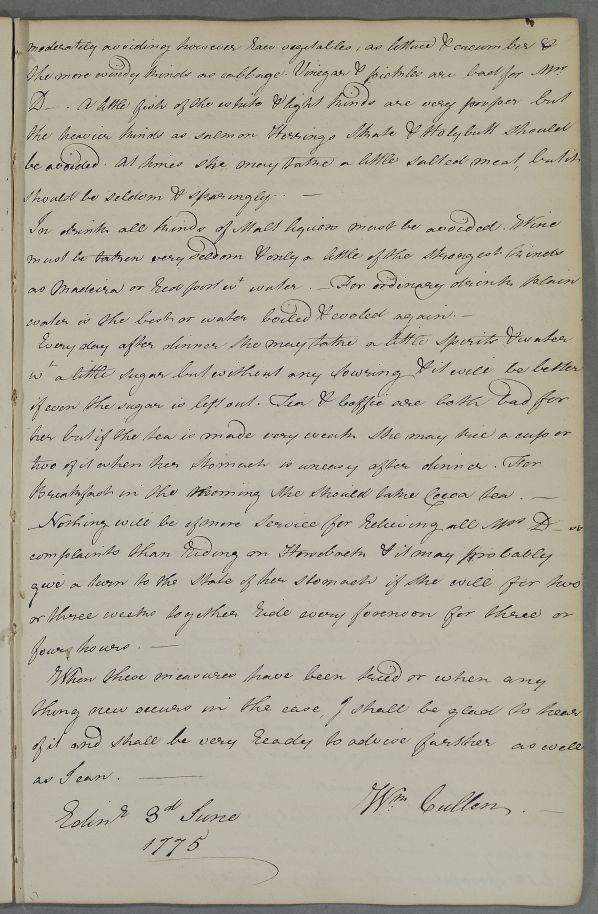 moderately avoiding however Raw vegetables, as lettuce & cucumber &
the more windy kinds as cabbage. Vinegar & pickles are bad for Mrs
D—. A little fish of the white & light kinds are very proper but
the heavier kinds as salmon Herrings Skate & Holybutt should
be avoided. At times she may take a little salted meat, but it
should be seldom & sparingly. —
In drink all kinds of Malt liquors must be avoided. Wine
must be taken very seldom & only a little of the strongest kinds
as Madeira or Red port wt water. — For ordinary drink plain
water is the best or water boiled & cooled again. —
Every day after dinner she may take a little Spirits & water
wt a little sugar but without any souring & it will be better
if even the sugar is left out. Tea & Coffie are both bad for
her but if the tea is made very weak she may take a cup or
two of it when her stomach is uneasy after dinner. For
Breakfast in the morning she should take Cocoa tea. —
Nothing will be of more Service for Relieving all Mrs D—s
complaints than Riding on Horseback & it may probably
give a turn to the State of her stomach if she will for two
or three weeks together Ride every forenoon for three or
four hours. —
When these measures have been tried or when any
thing new occurs in the case, I shall be glad to hear
of it and shall be very Ready to advise further as well
as I can. —
Wm Cullen. —
Edinr 3d June
1775